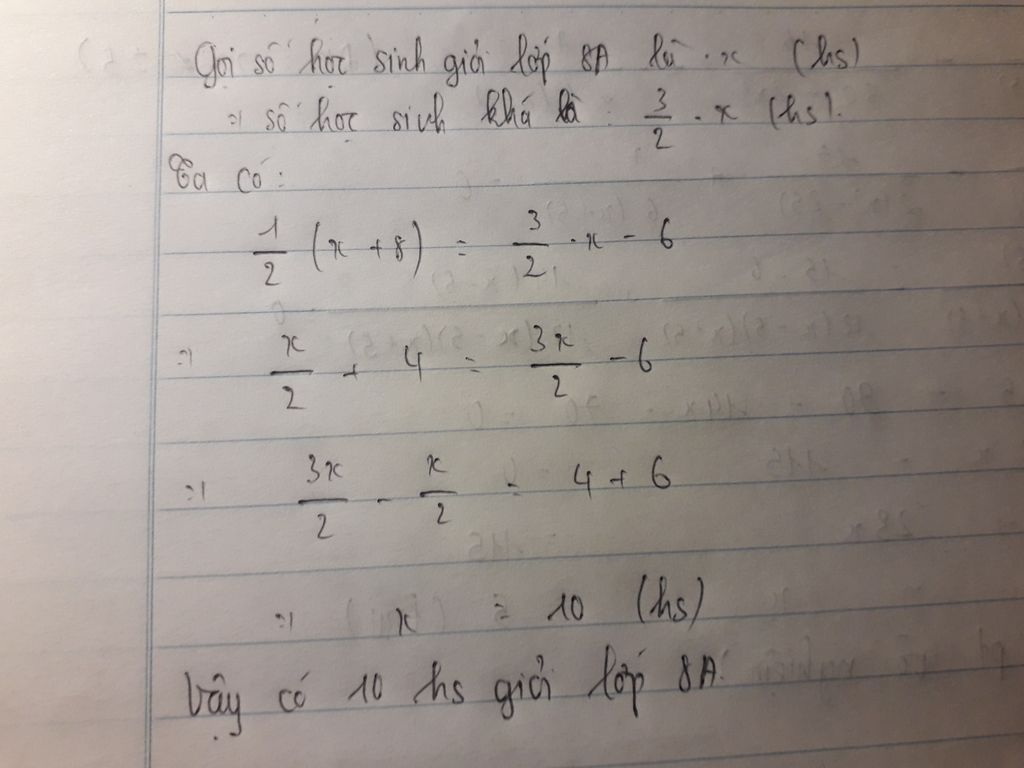 Gọi số học sinh giỏi lớp 8A là x (hs)
=> số học sinh khá là : 3/2 . x (hs).
Ta có:
1/2 (x + 8) = 3/2 . x - 6
=> x/2 + 4 = 3x/2 - 6
=> 3x/2 - x/2 = 4 + 6
=> x = 10 (hs)
Vậy có 10 hs giỏi lớp 8A.